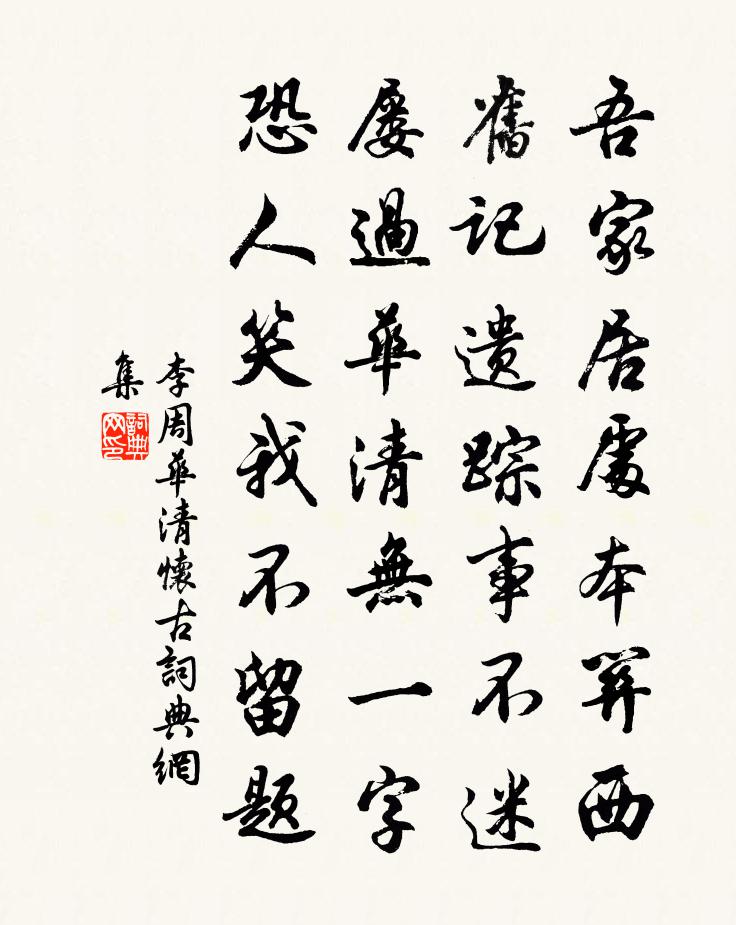 吾家居處本關西
舊記遺踪事不迷
屢過華清無一字
恐人笑我不留題
李周華清懷古詞典網
集
詞典
网印